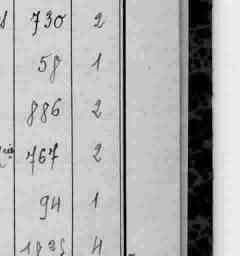 730 2
58 1
886 2
767 2
94 1
4